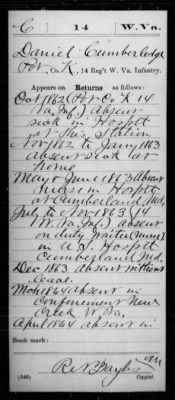 C 14 W. Va.
Daniel Cumberledge
Pvt., Co. K, 14 Reg't W. Va. Infantry.
Appears on Returns as follows:
Oct 1862 (Pvt Co K 14
Va. Inf.) absent
sick in Hospt
at this Station
Nov 1862 to Jany 1863
absent sick at
home
May & June 1863 absent
nurse in Hosptl
at Cumberland, Md.
July to Nov 1863 (14
W. Va. Inf.) absent
on duty
in U.S. Hosptl
Cumberland Md.
Dec 1863 absent without
leave.
Mch 1864 absent in
confinement New
Creek W. Va.
April 1864 absent in
Book mark:
(546) Copyist.